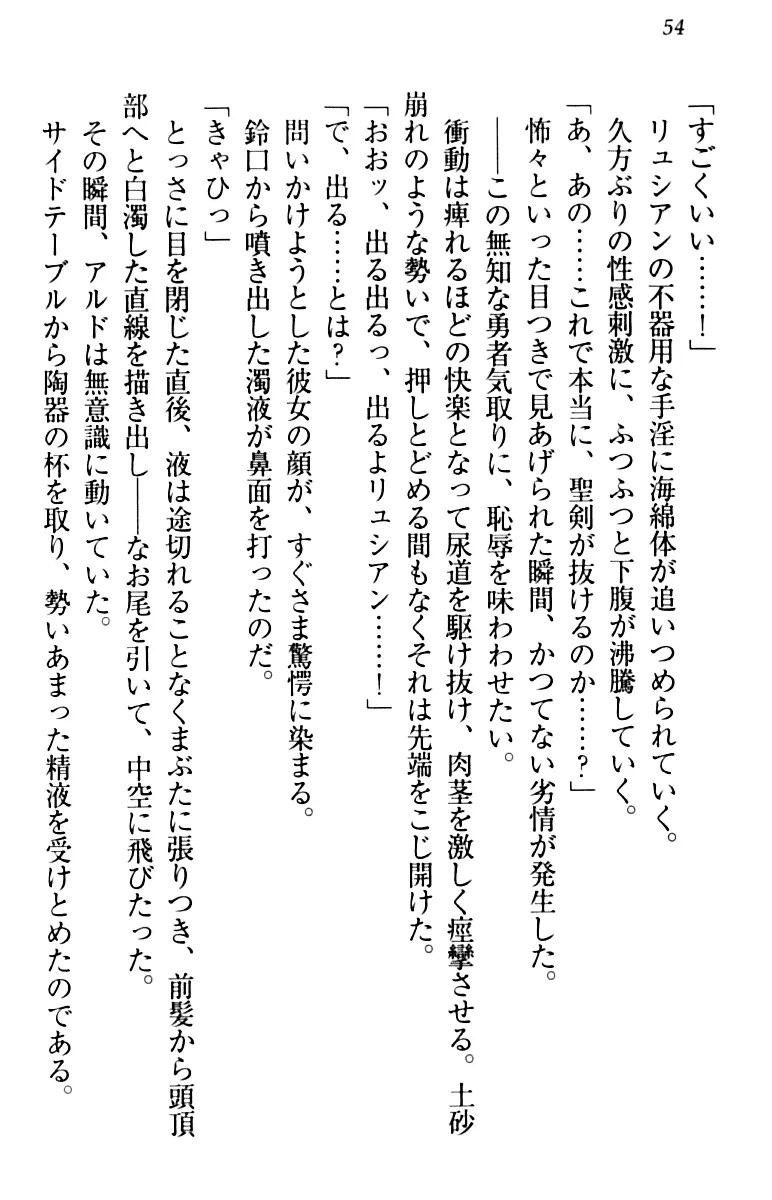 54
「すごくいい……！」
リュシアンの不器用な手淫に海綿体が追いつめられていく。
久方ぶりの性感刺激に、ふつふつと下腹が沸騰していく。
「あ、あの……これで本当に、聖剣が抜けるのか……？」
怖々といった目つきで見あげられた瞬間、かつてない劣情が発生した。
――この無知な勇者気取りに、恥辱を味わわせたい。
衝動は痺れるほどの快楽となって尿道を駆け抜け、肉茎を激しく痙攣させる。土砂
崩れのような勢いで、押しとどめる間もなくそれは先端をこじ開けた。
「おおッ、出る出るっ、出るよリュシアン……！」
「で、出る……とは？」
問いかけようとした彼女の顔が、すぐさま驚愕に染まる。
鈴口から噴き出した濁液が鼻面を打ったのだ。
「きゃひっ」
とっさに目を閉じた直後、液は途切れることなくまぶたに張りつき、前髪から頭頂
部へと白濁した直線を描き出し――なお尾を引いて、中空に飛びたった。
その瞬間、アルドは無意識に動いていた。
サイドテーブルから陶器の杯を取り、勢いあまった精液を受けとめたのである。